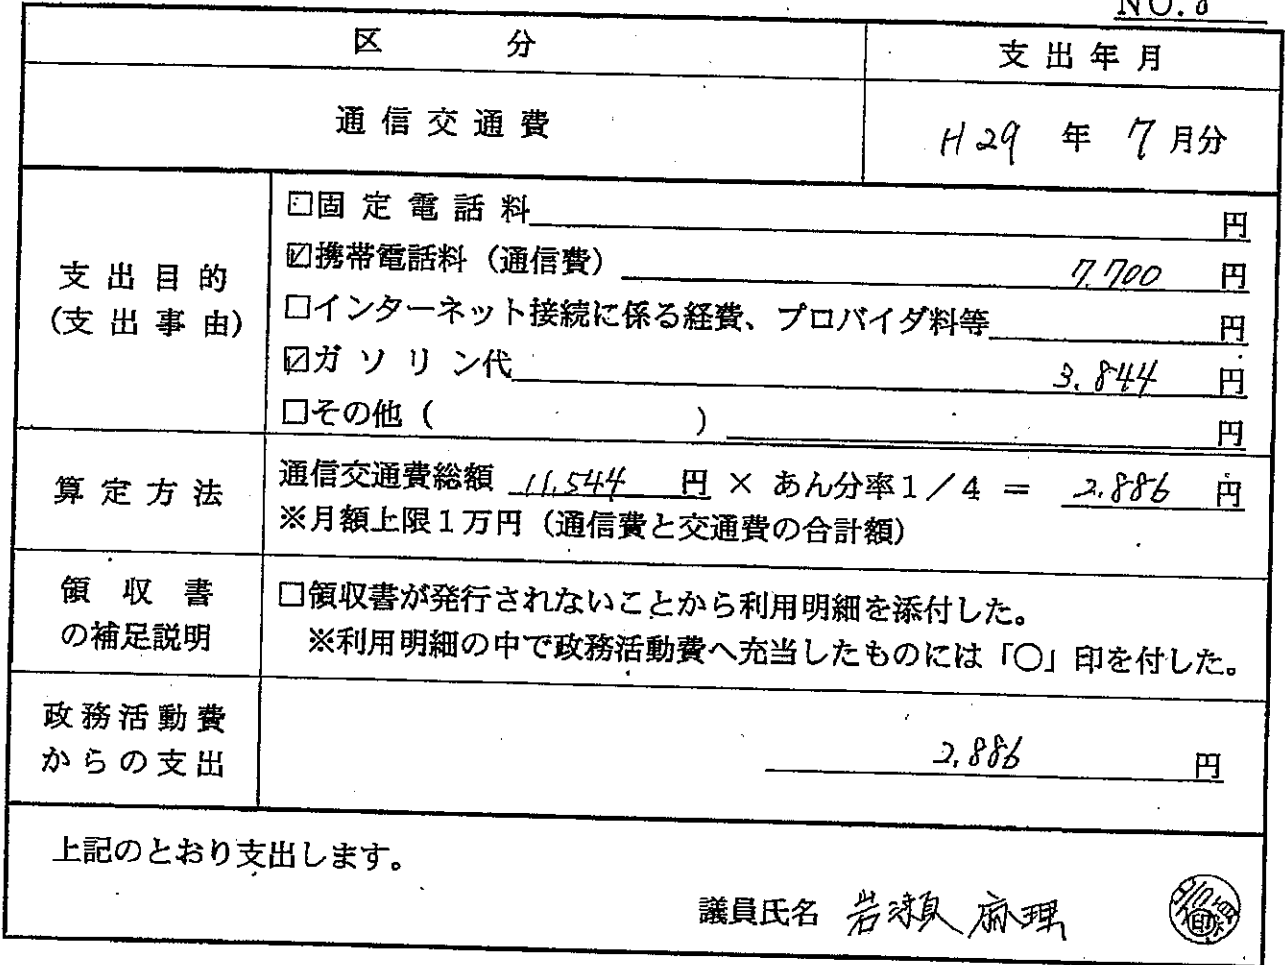 NO.8
区 分
支出年月
通信交通費
H29 年 7月分
支出目的
(支出事由)
□固定電話料 円
☑携帯電話料（通信費） 7,700 円
□インターネット接続に係る経費、プロバイダ料等 円
☑ガソリン代 3,844 円
□その他（ ） 円
算定方法
通信交通費総額 11,544 円 × あん分率1／4 ＝ 2,886 円
※月額上限1万円（通信費と交通費の合計額）
領収書
の補足説明
□領収書が発行されないことから利用明細を添付した。
※利用明細の中で政務活動費へ充当したものには「○」印を付した。
政務活動費
からの支出
2,886 円
上記のとおり支出します。
議員氏名 岩瀬 麻理